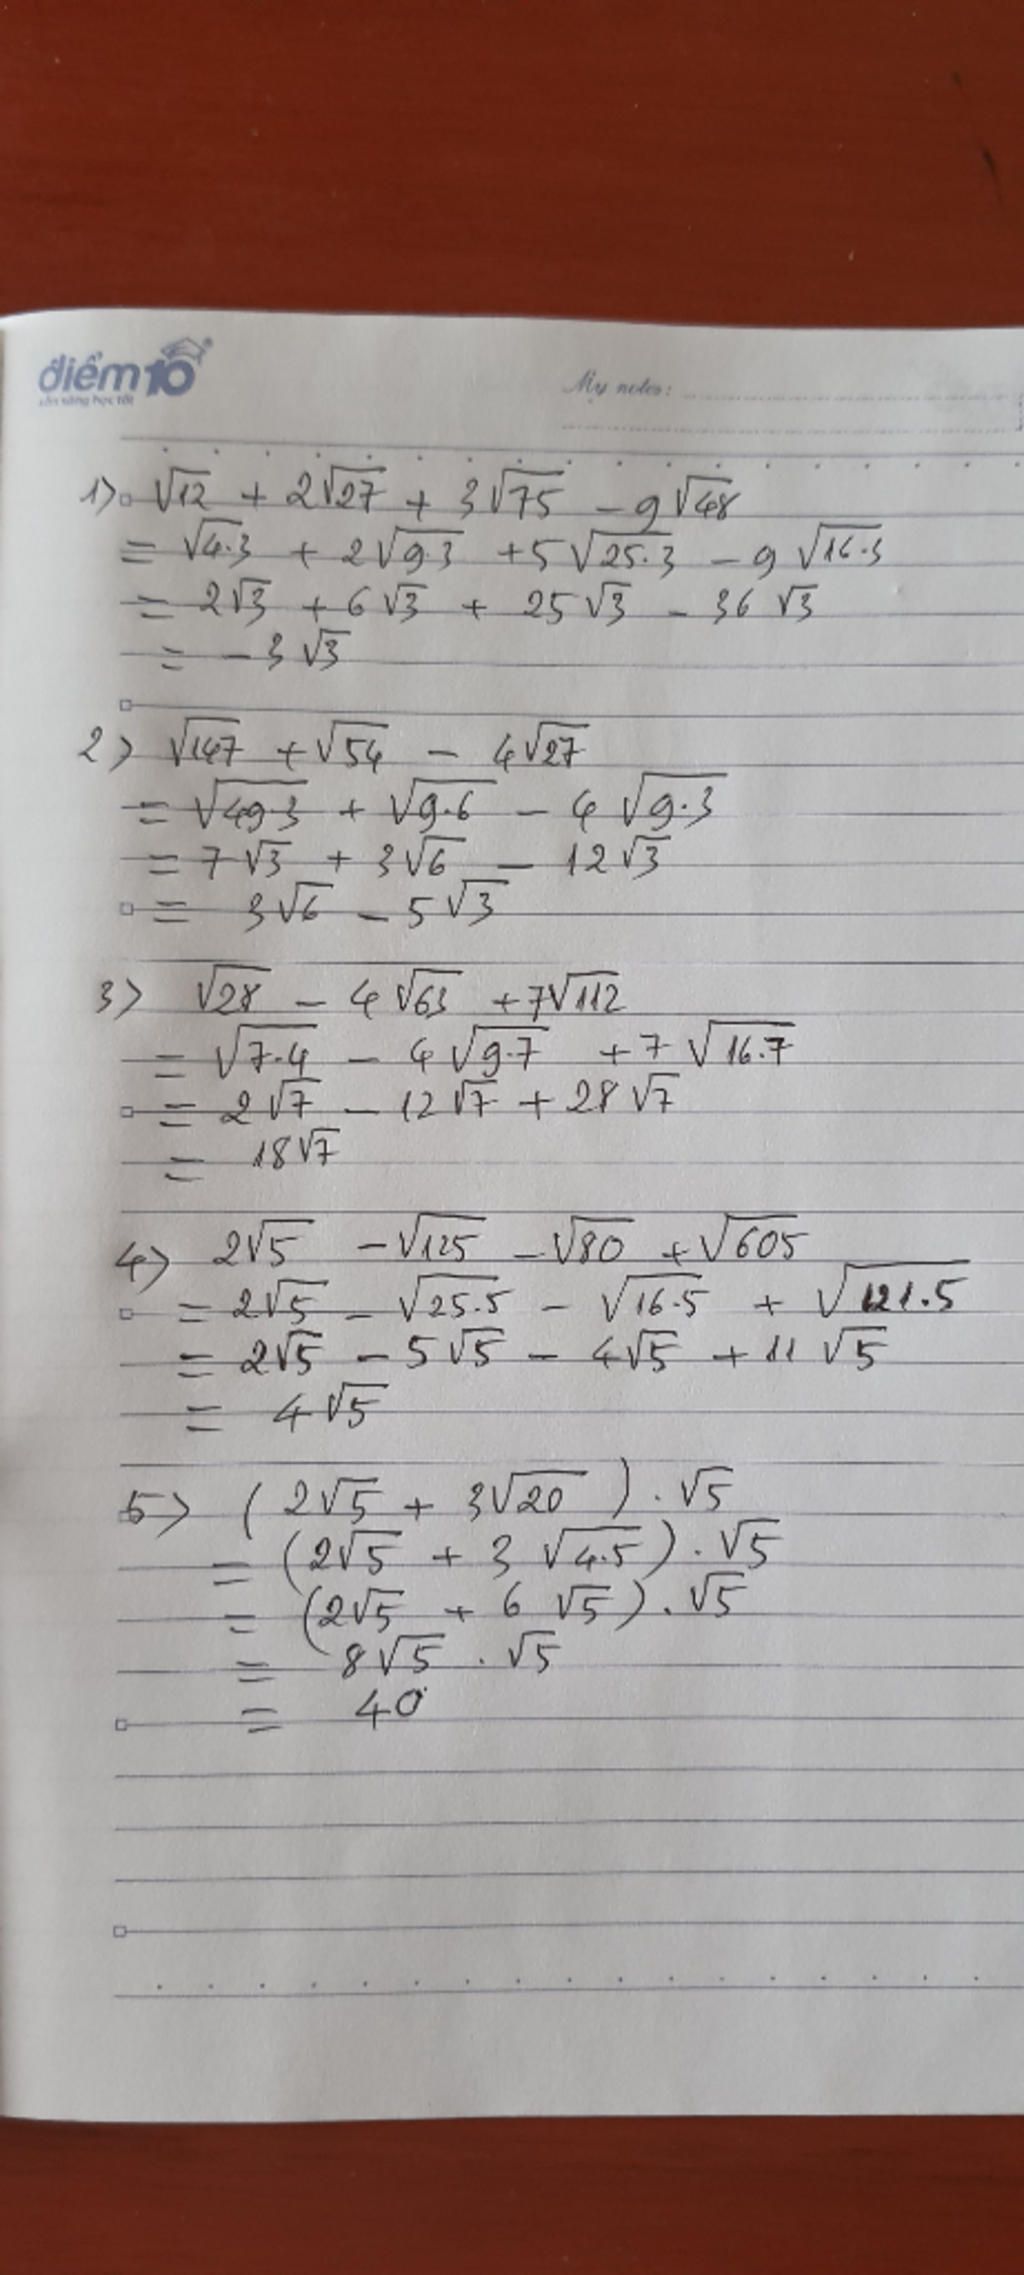 điểm10
sẵn sàng học tốt
My notes:
1) √12 + 2√27 + 3√75 - 9√48
= √4.3 + 2√9.3 + 5√25.3 - 9√16.3
= 2√3 + 6√3 + 25√3 - 36√3
= -3√3
2) √147 + √54 - 4√27
= √49.3 + √9.6 - 4√9.3
= 7√3 + 3√6 - 12√3
= 3√6 - 5√3
3) √28 - 4√63 + 7√112
= √7.4 - 4√9.7 + 7√16.7
= 2√7 - 12√7 + 28√7
= 18√7
4) 2√5 - √125 - √80 + √605
= 2√5 - √25.5 - √16.5 + √121.5
= 2√5 - 5√5 - 4√5 + 11√5
= 4√5
5) (2√5 + 3√20) . √5
= (2√5 + 3√4.5) . √5
= (2√5 + 6√5) . √5
= 8√5 . √5
= 40